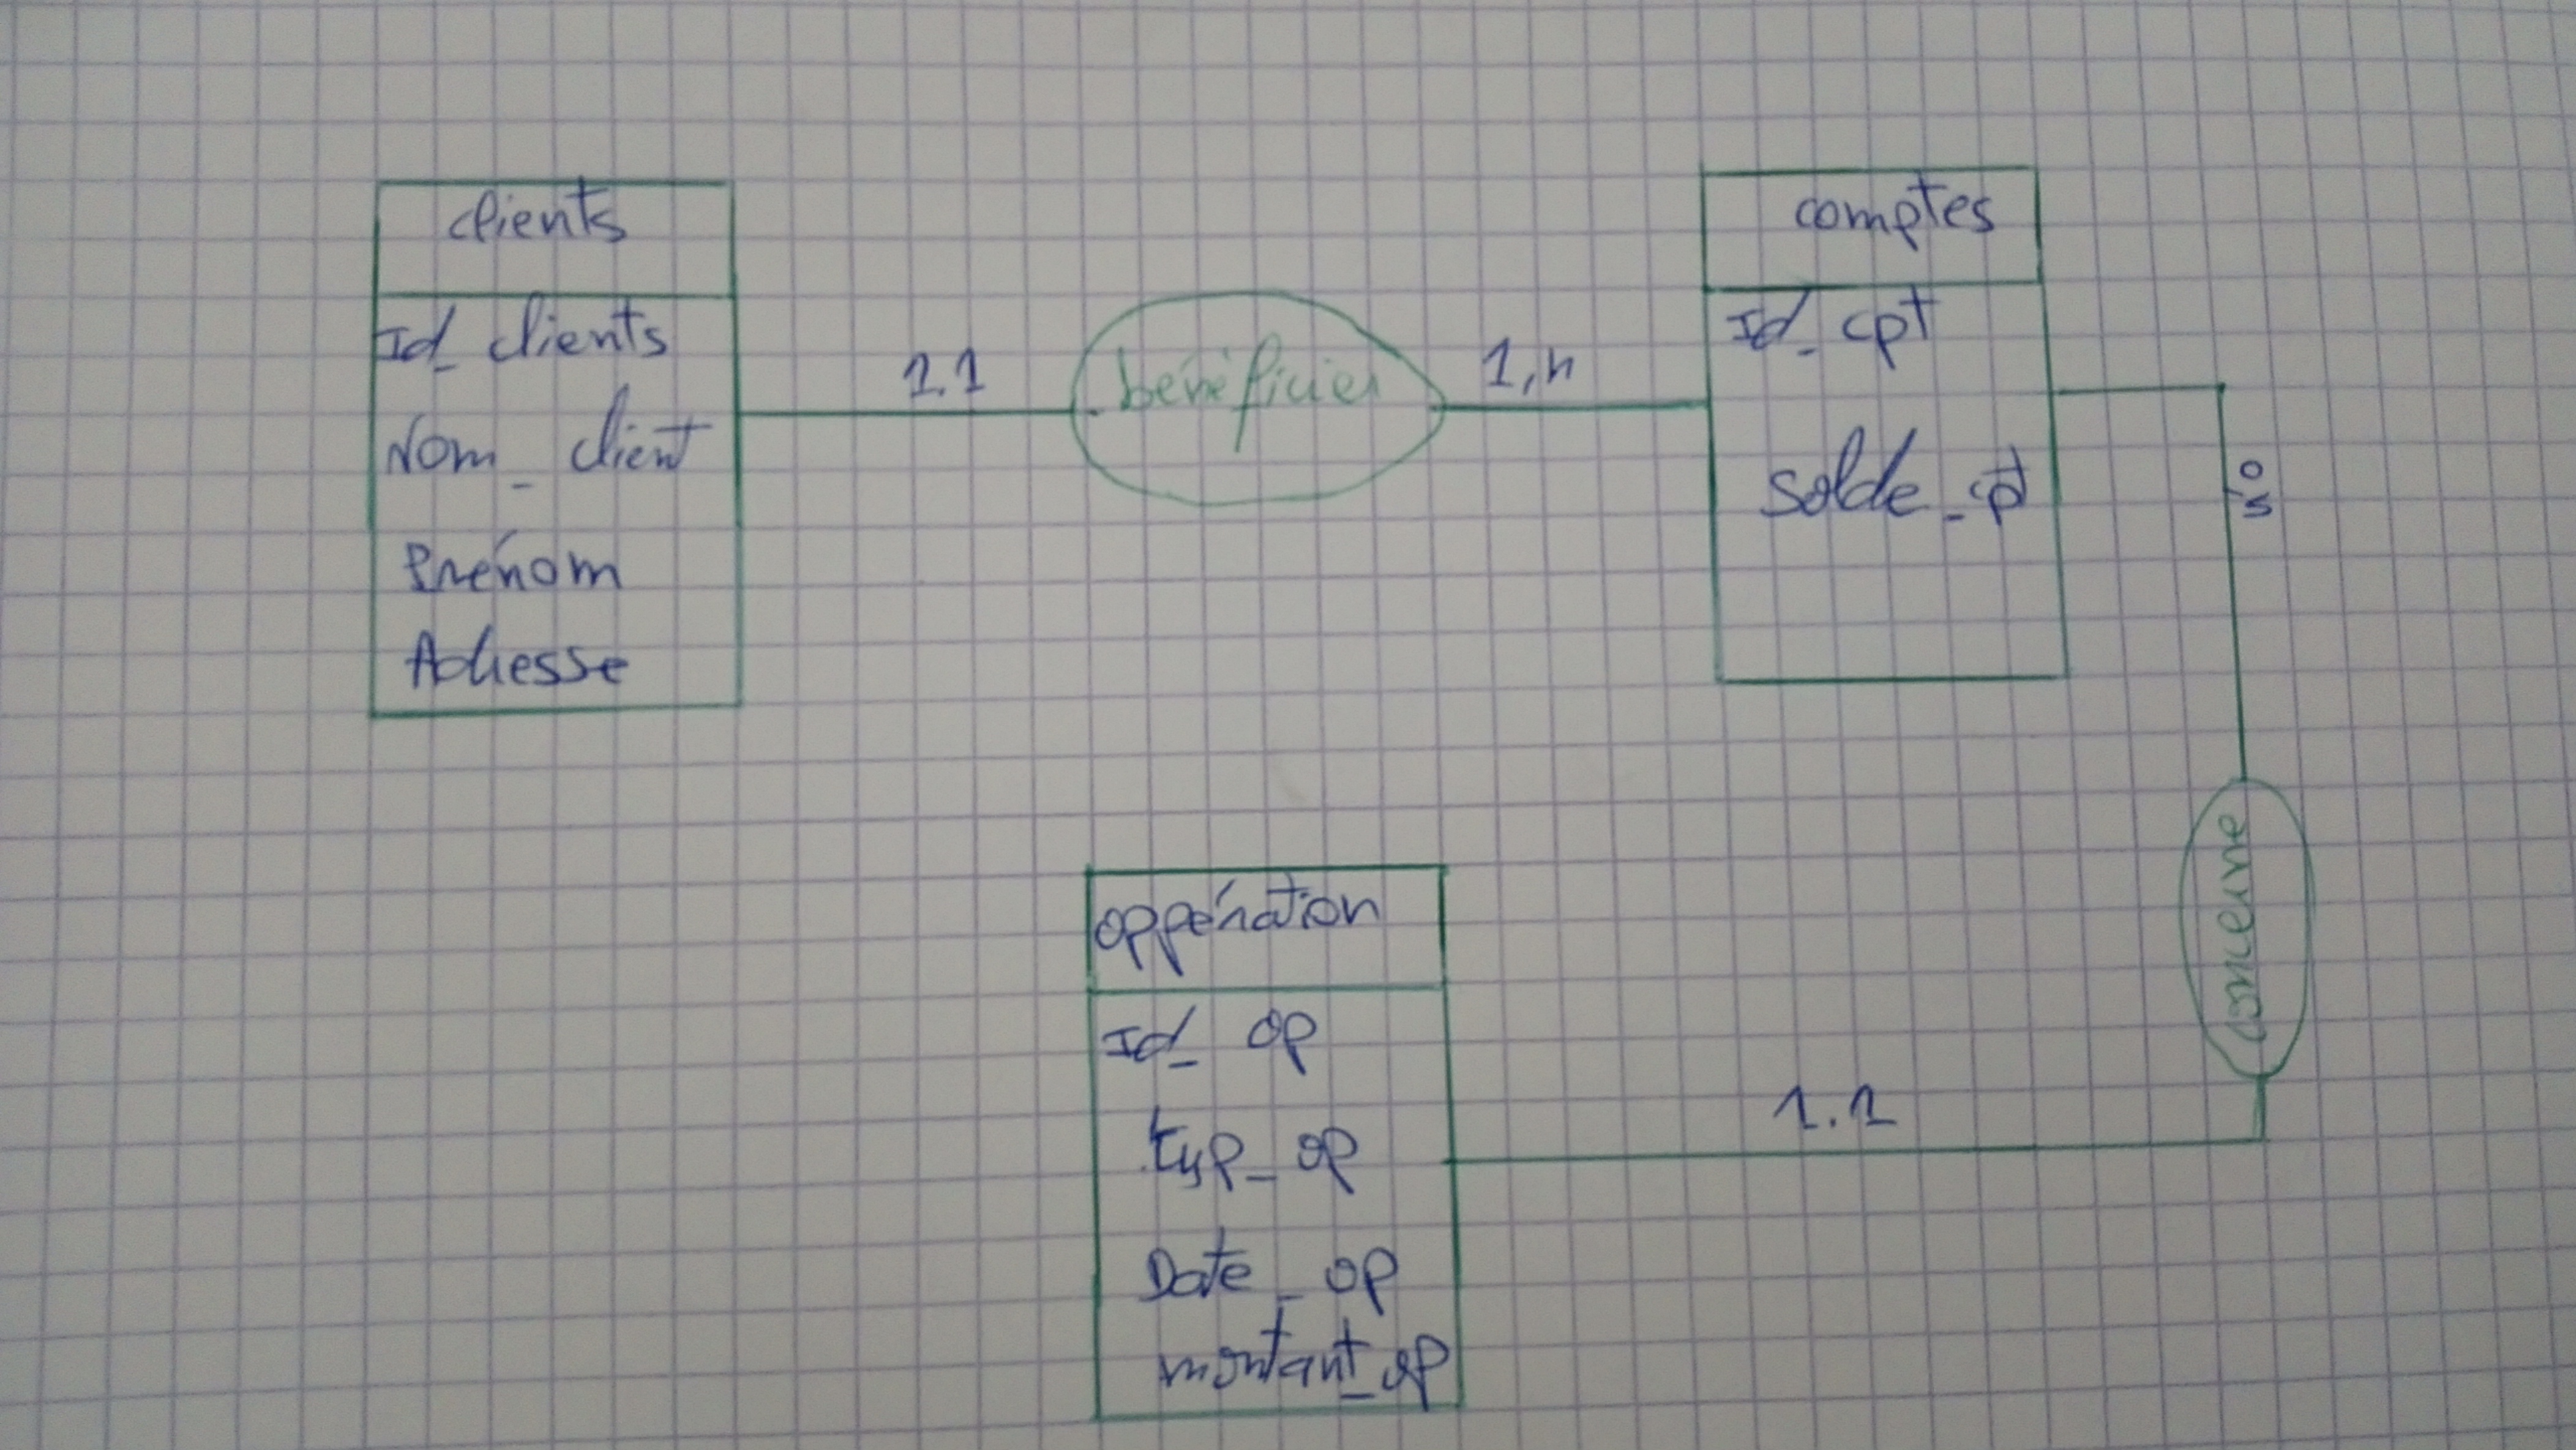 clients
Id_clients
Nom_client
Prénom
Adresse
1.1
bénéficier
1,n
comptes
Id_cpt
Solde_cpt
0,n
concerne
1.1
oppération
Id_op
typ_op
Date_op
montant_op